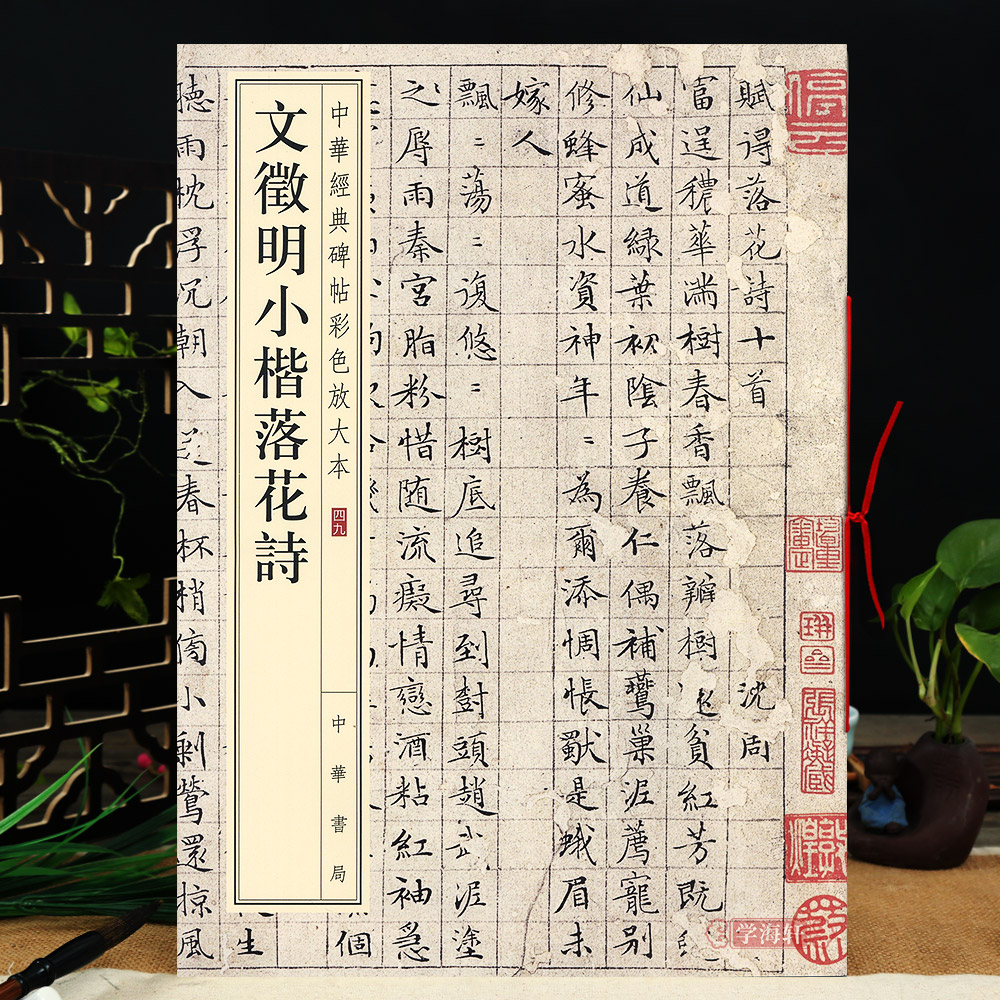 中華經典碑帖彩色放大本
四九
文徵明小楷落花詩
中華書局
賦得落花詩十首 沈周
富逞穠華滿樹春香飄落瓣樹還貧紅芳既
仙成道綠葉初陰子養仁偶補鶯巢泥薦寵别
修蜂蜜水資神年〻為爾添惆悵獨是蛾眉未
嫁人
飄〻蕩〻復悠〻樹底追尋到樹頭趙武泥塗
之辱雨秦宮脂粉惜随流癡情戀酒粘紅袖急
個
生
聽雨枕浮沉朝入春杯梢傍小剩鶯還掠風
学海轩